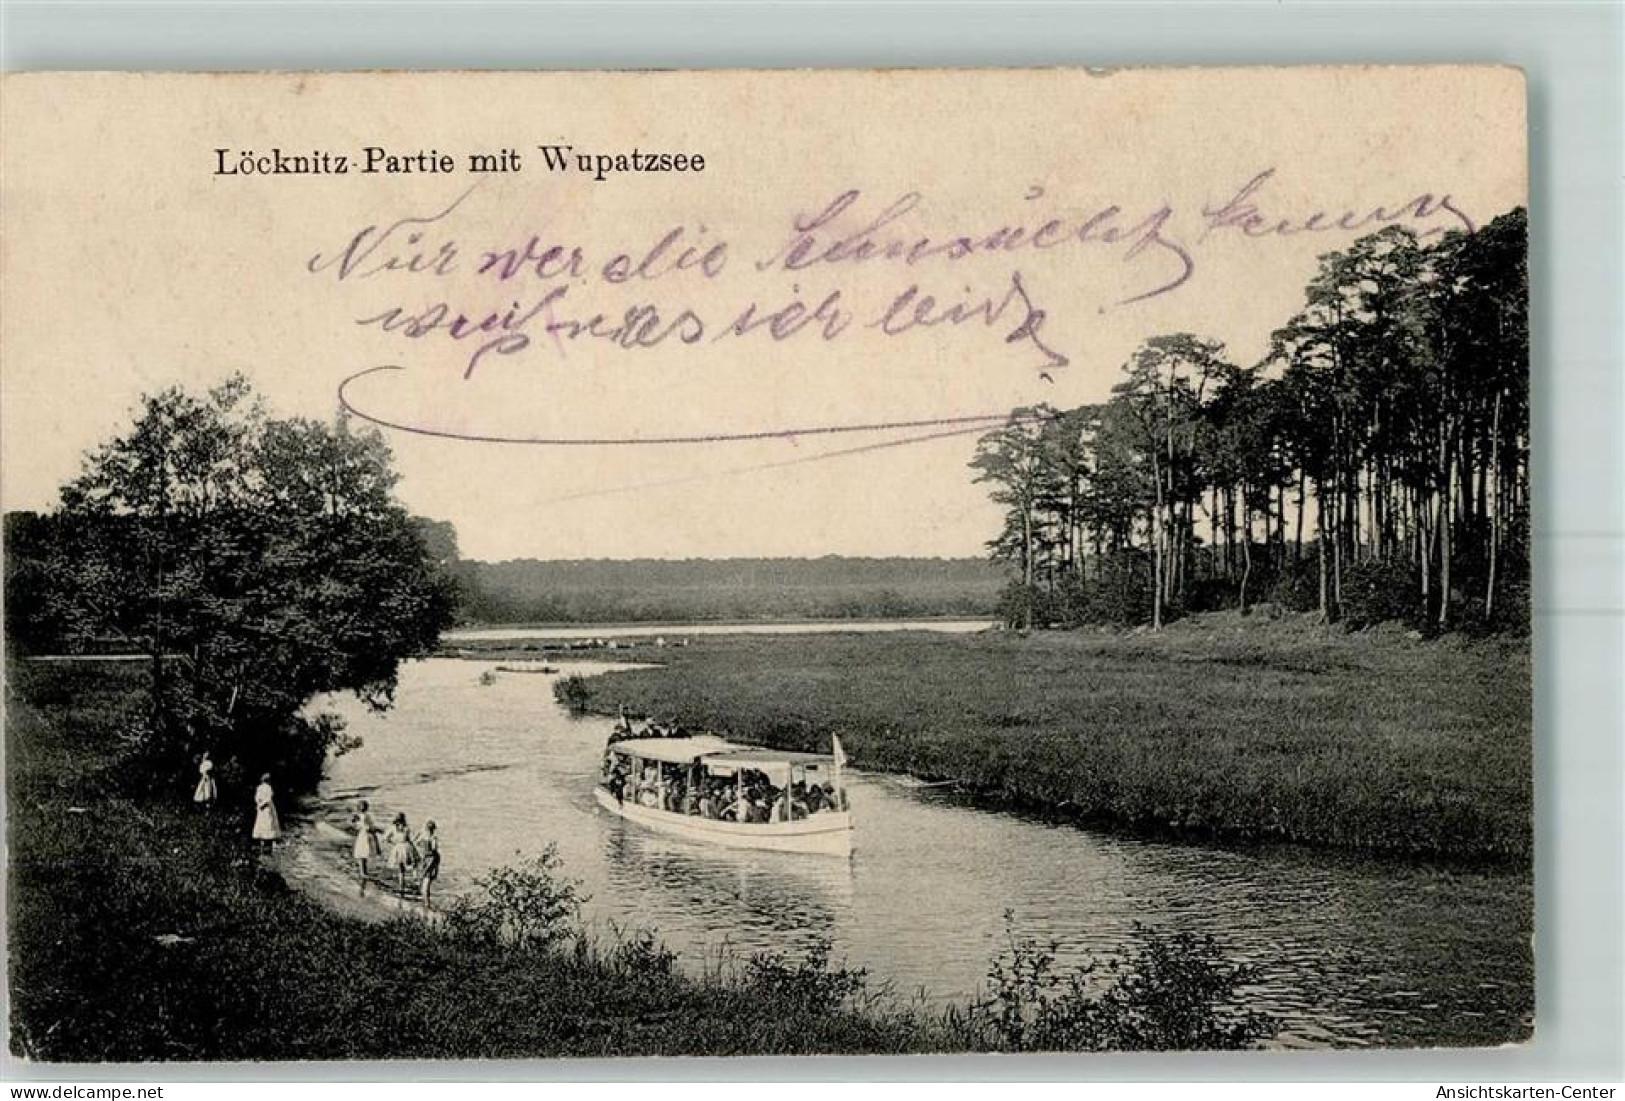 Löcknitz-Partie mit Wupatzsee
Nur wer die Sehnsucht kennt
weiß was ich leide
www.delcampe.net
Ansichtskarten-Center